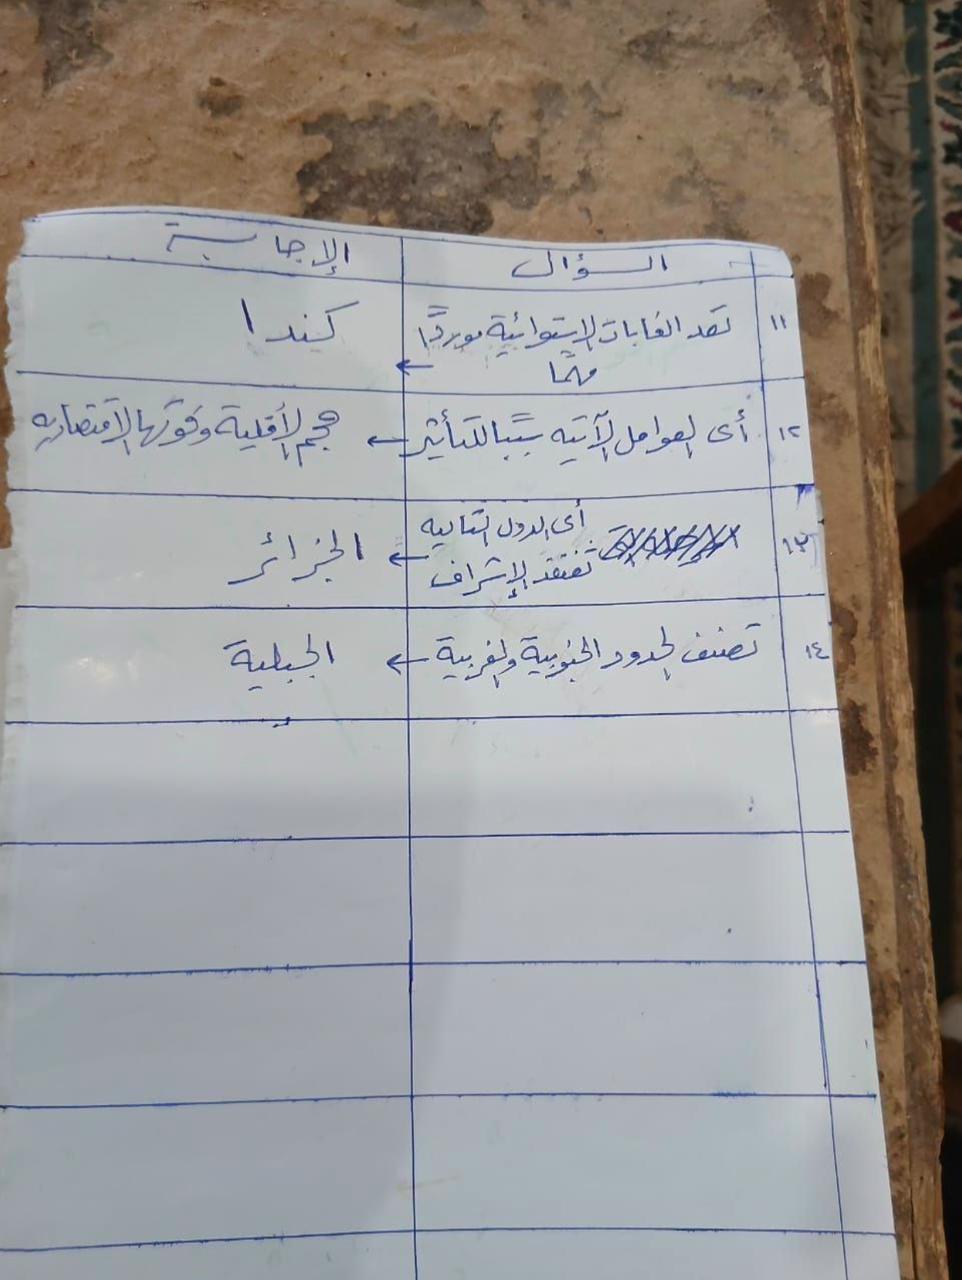 السؤال الإجابة
١١ تعد الغابات الإستوائية موردًا كندا
مهمًا ←
١٢ أى العوامل الآتيه سببًا للتأثير ← حجم الأقلية وقوتها الاقتصاديه
١٣ أى الدول التاليه
تفتقد الإشراف ← الجزائر
١٤ تصنف الحدود الجنوبية والغربية ← الجبلية